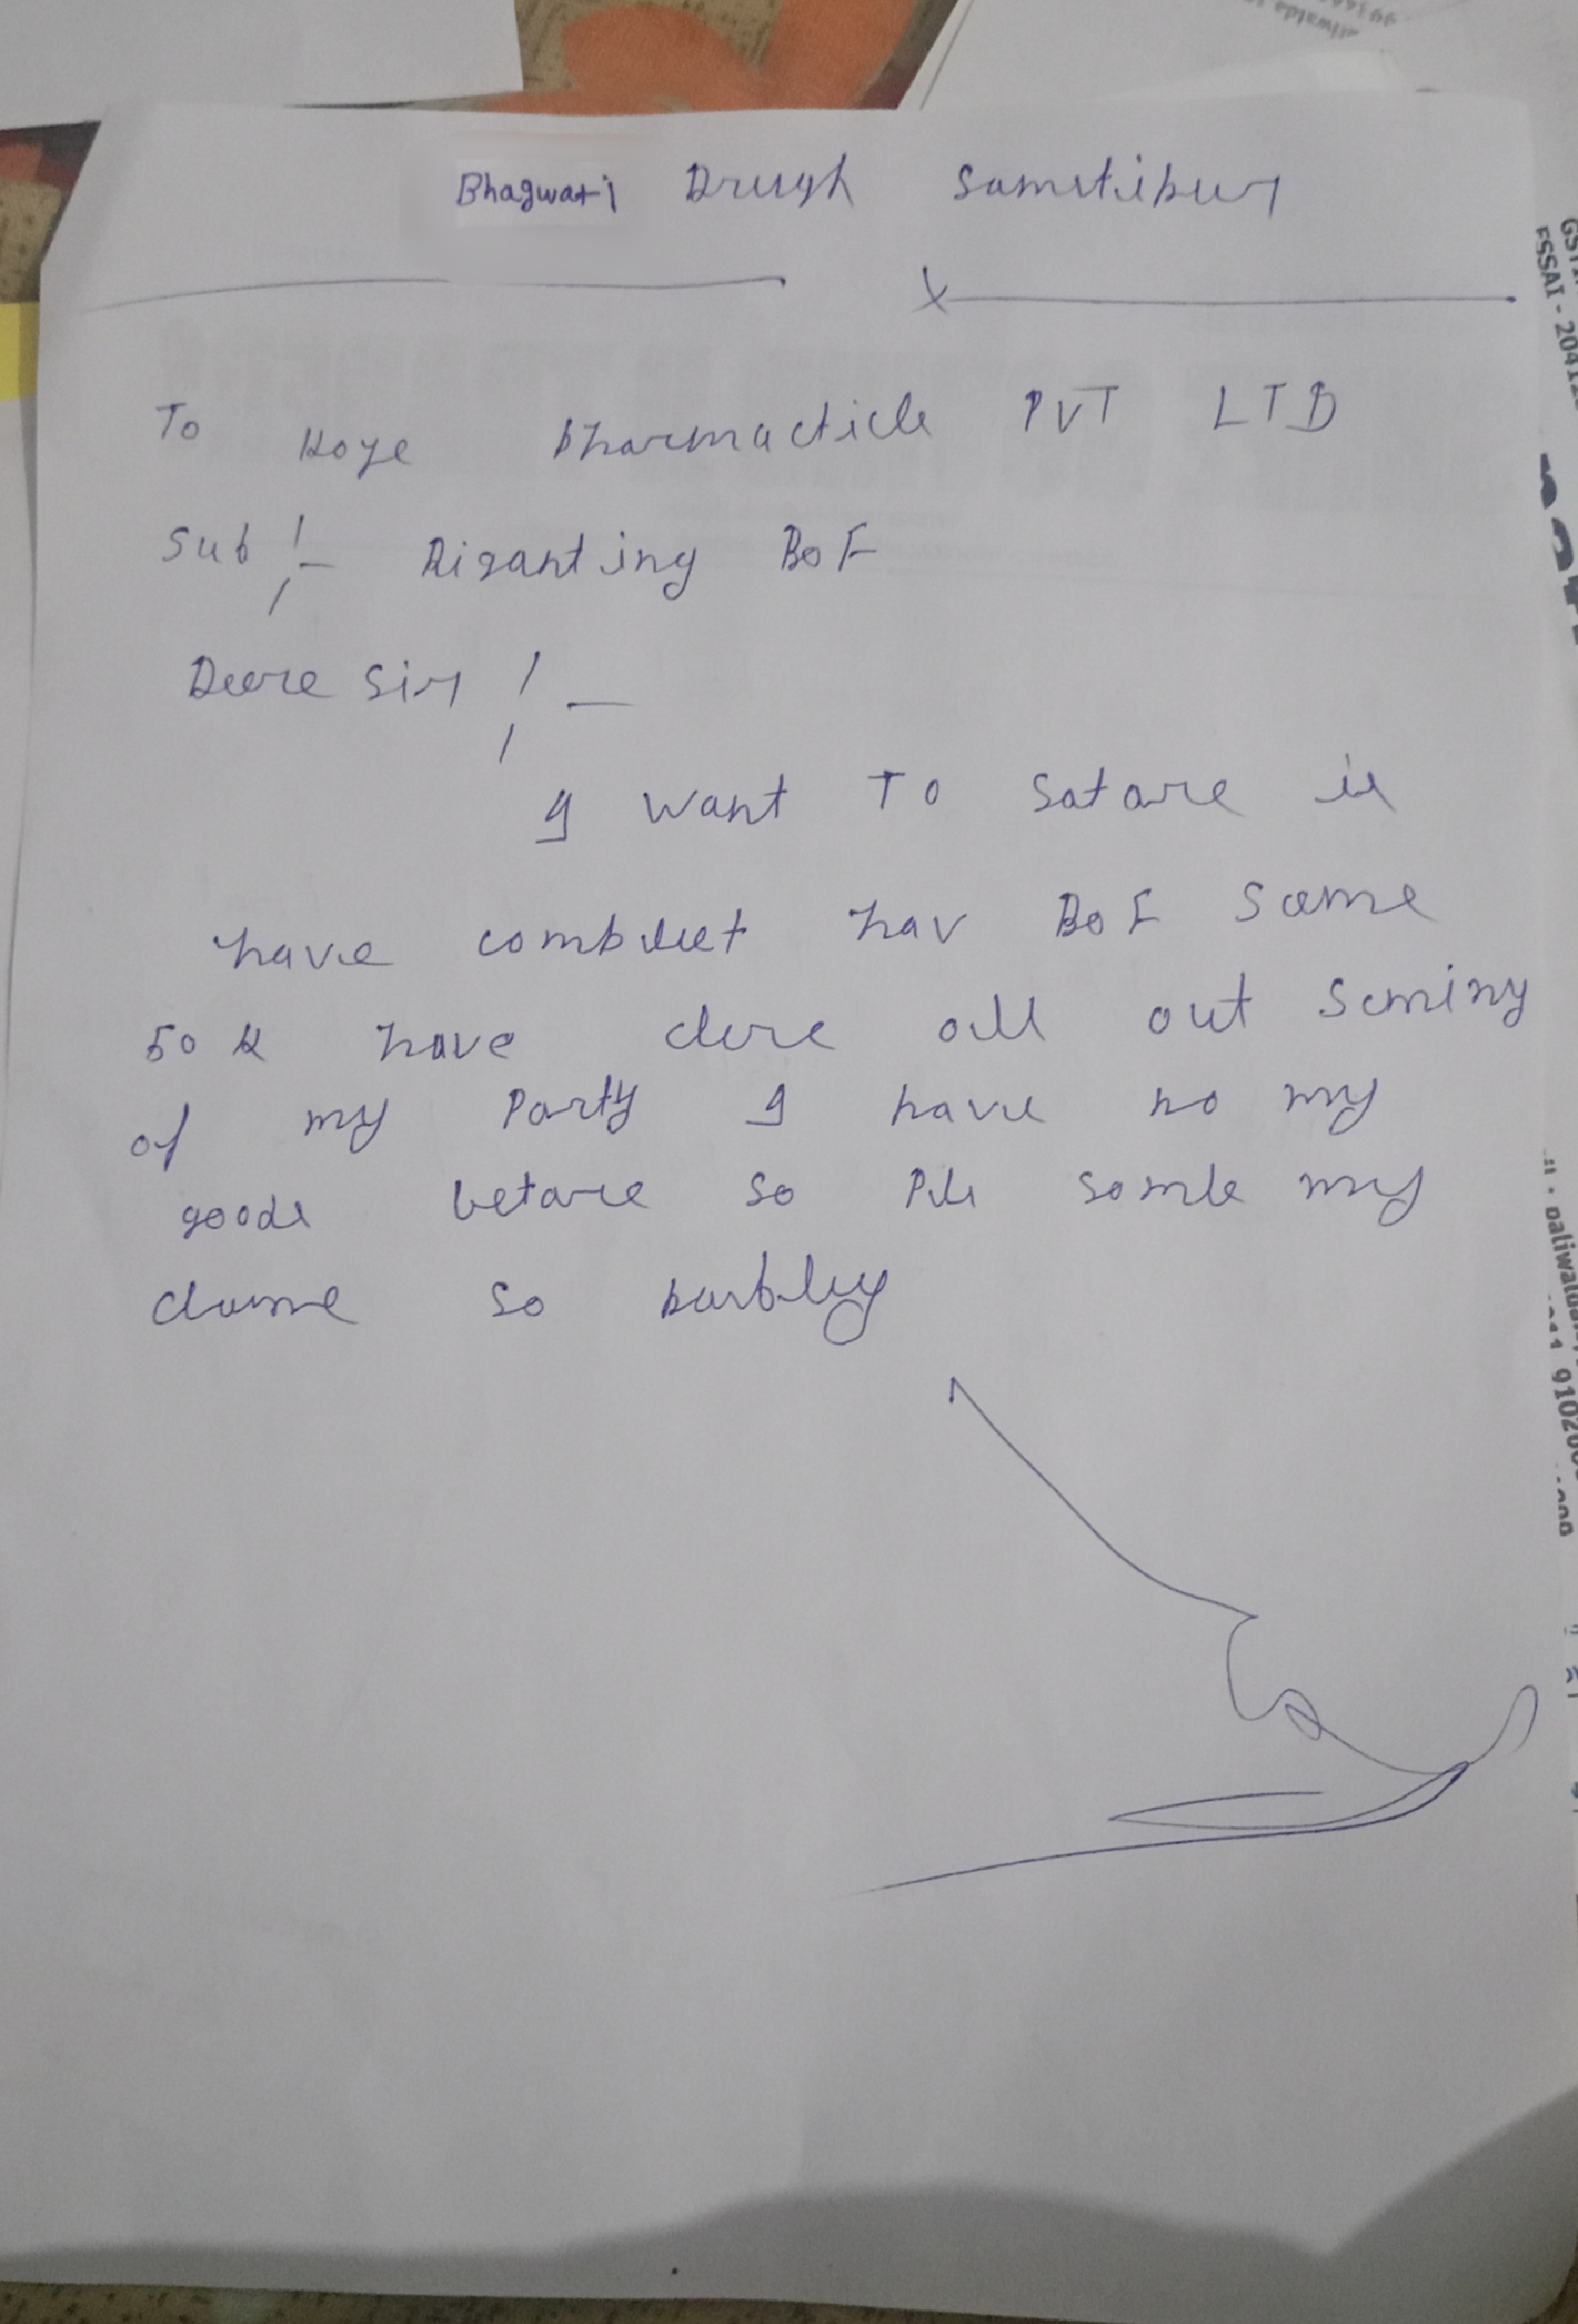 Bhagwati Drugh Samstipur
To Koye Pharmacticle PVT LTD
Sub :- Riganting BOF
Deere Sir :-
I want To Satare is
have combleet hav BOF Same
50 K have clere all out Seminy
of my Party I have no my
goods betare so Pils somle my
clame so burbley
FSSAI - 2041